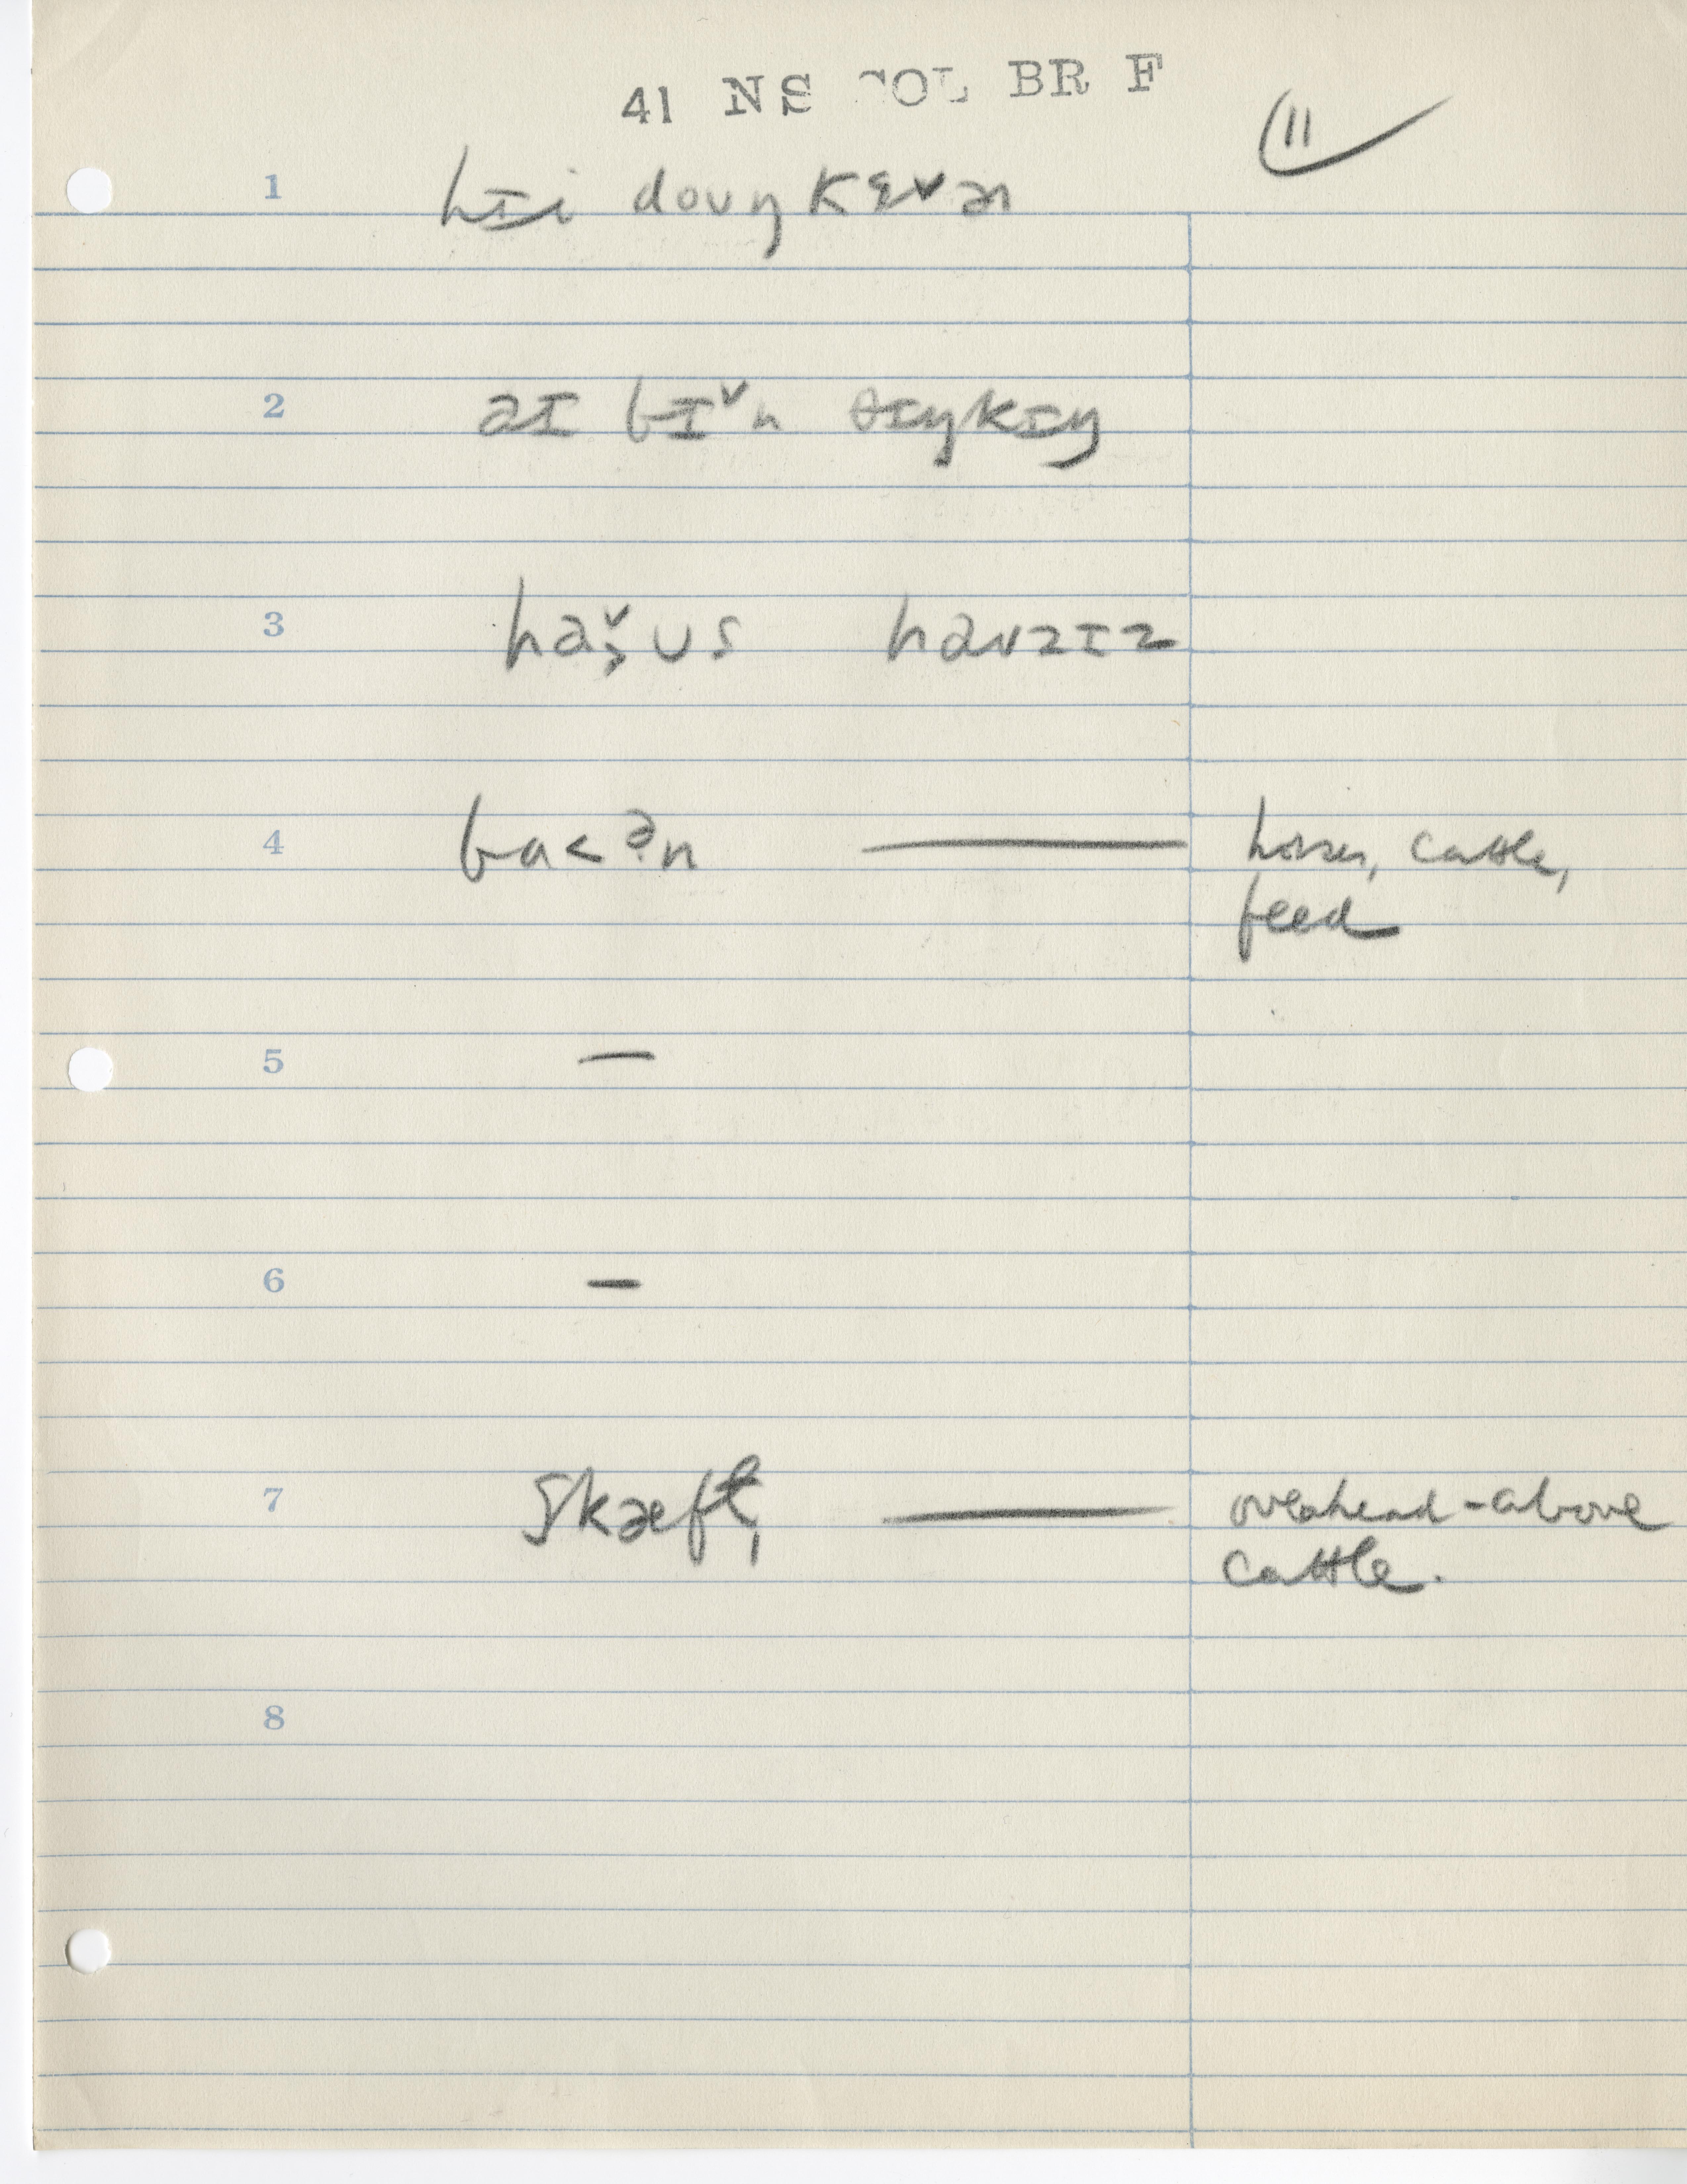 41 NS COL BR F
11
1 hɪi doʊŋ kɛvən
2 aɪ bɪˇn θɪŋkɪŋ
3 haʊzɪz
4 ba<ən — horses, cattle,
feed
5 —
6 —
7 skæft — overhead - above
cattle.
8